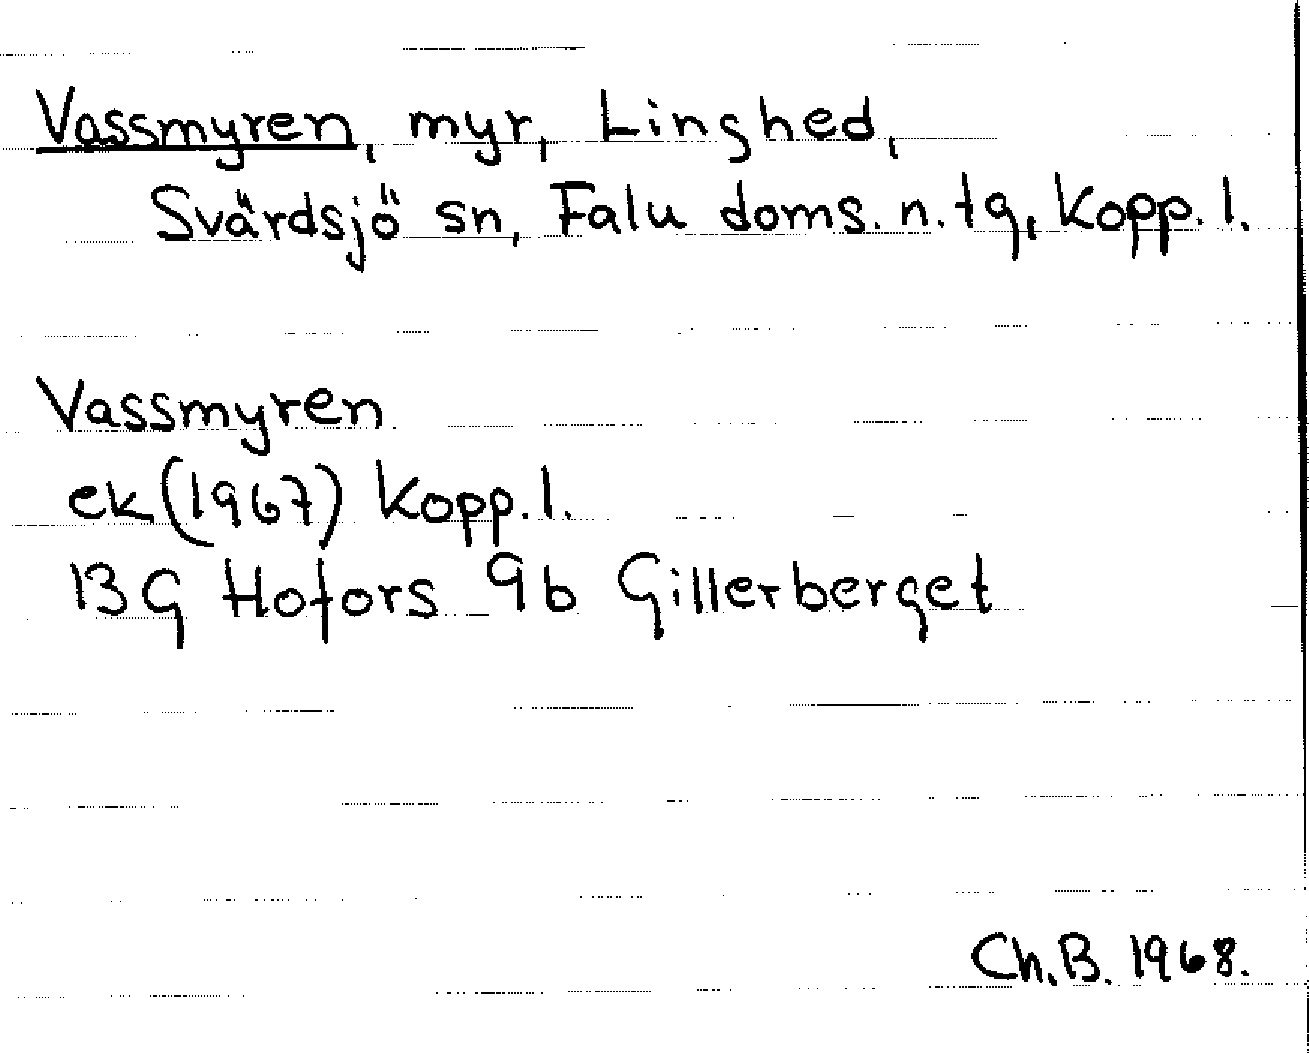 Vassmyren, myr, Linghed,
Svärdsjö sn, Falu doms. n. tg, Kopp. l.
Vassmyren
ek (1967) Kopp. l.
13G Hofors 9b Gillerberget
Ch. B. 1968.